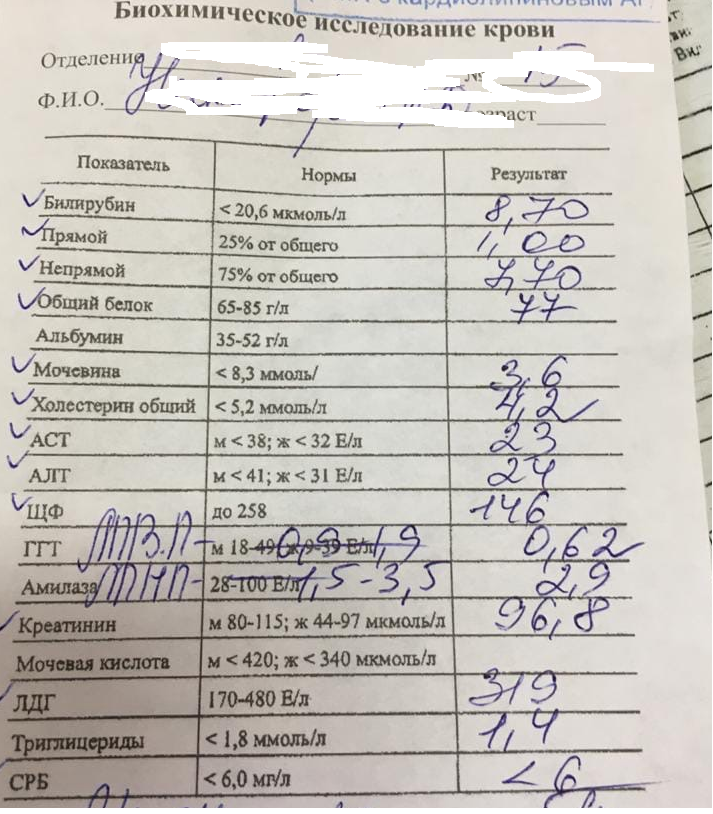 с кардиолипиновым АГ
Биохимическое исследование крови
Отделение № 15
Ф.И.О. возраст
Показатель Нормы Результат
Билирубин < 20,6 мкмоль/л 8,70
Прямой 25% от общего 1,00
Непрямой 75% от общего 7,70
Общий белок 65-85 г/л 77
Альбумин 35-52 г/л
Мочевина < 8,3 ммоль/ 3,6
Холестерин общий < 5,2 ммоль/л 4,2
АСТ м < 38; ж < 32 Е/л 23
АЛТ м < 41; ж < 31 Е/л 24
ЩФ до 258 146
ГГТ ЛПВП - м 18-49; ж 9-39 Е/л 0,9 - 1,9 0,62
Амилаза ЛПНП - 28-100 Е/л 1,5 - 3,5 2,9
Креатинин м 80-115; ж 44-97 мкмоль/л 96,8
Мочевая кислота м < 420; ж < 340 мкмоль/л
ЛДГ 170-480 Е/л 319
Триглицериды < 1,8 ммоль/л 1,4
СРБ < 6,0 мг/л < 6